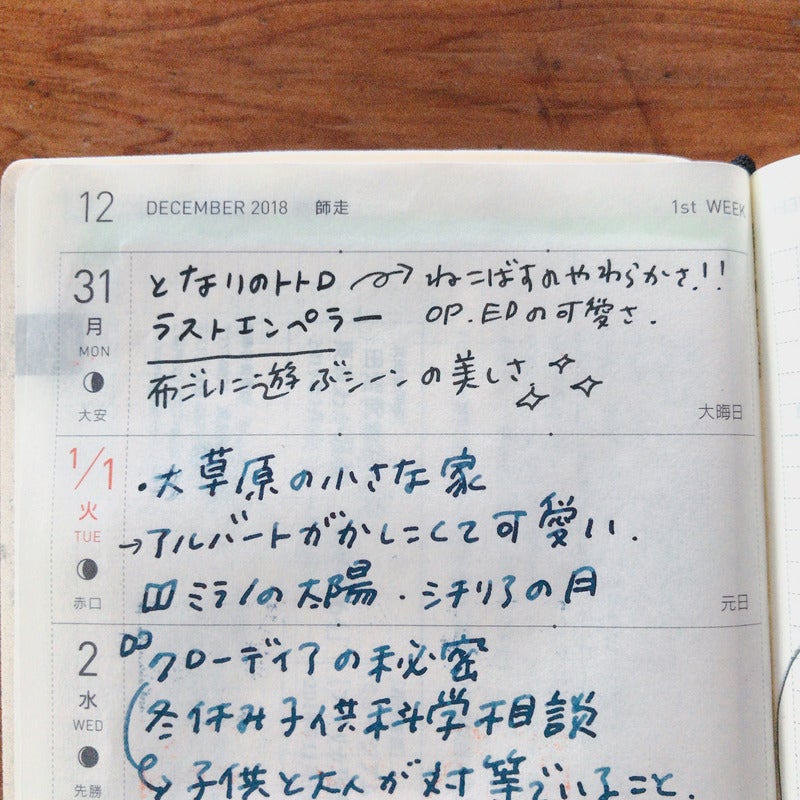 12 DECEMBER 2018 師走 1st WEEK
31 月 MON 大安 大晦日
となりのトトロ → ねこばすのやわらかさ!!
ラストエンペラー OP.EDの可愛さ.
布ごしに遊ぶシーンの美しさ
1/1 火 TUE 赤口 元日
・大草原の小さな家
→アルバートがかしこくて可愛い.
ミラノの太陽・シチリアの月
2 水 WED 先勝
クローディアの秘密
冬休み子供科学相談
→子供と大人が対等でいること.